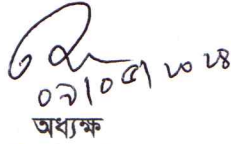 ০৯/০৫/২০২৪
অধ্যক্ষ